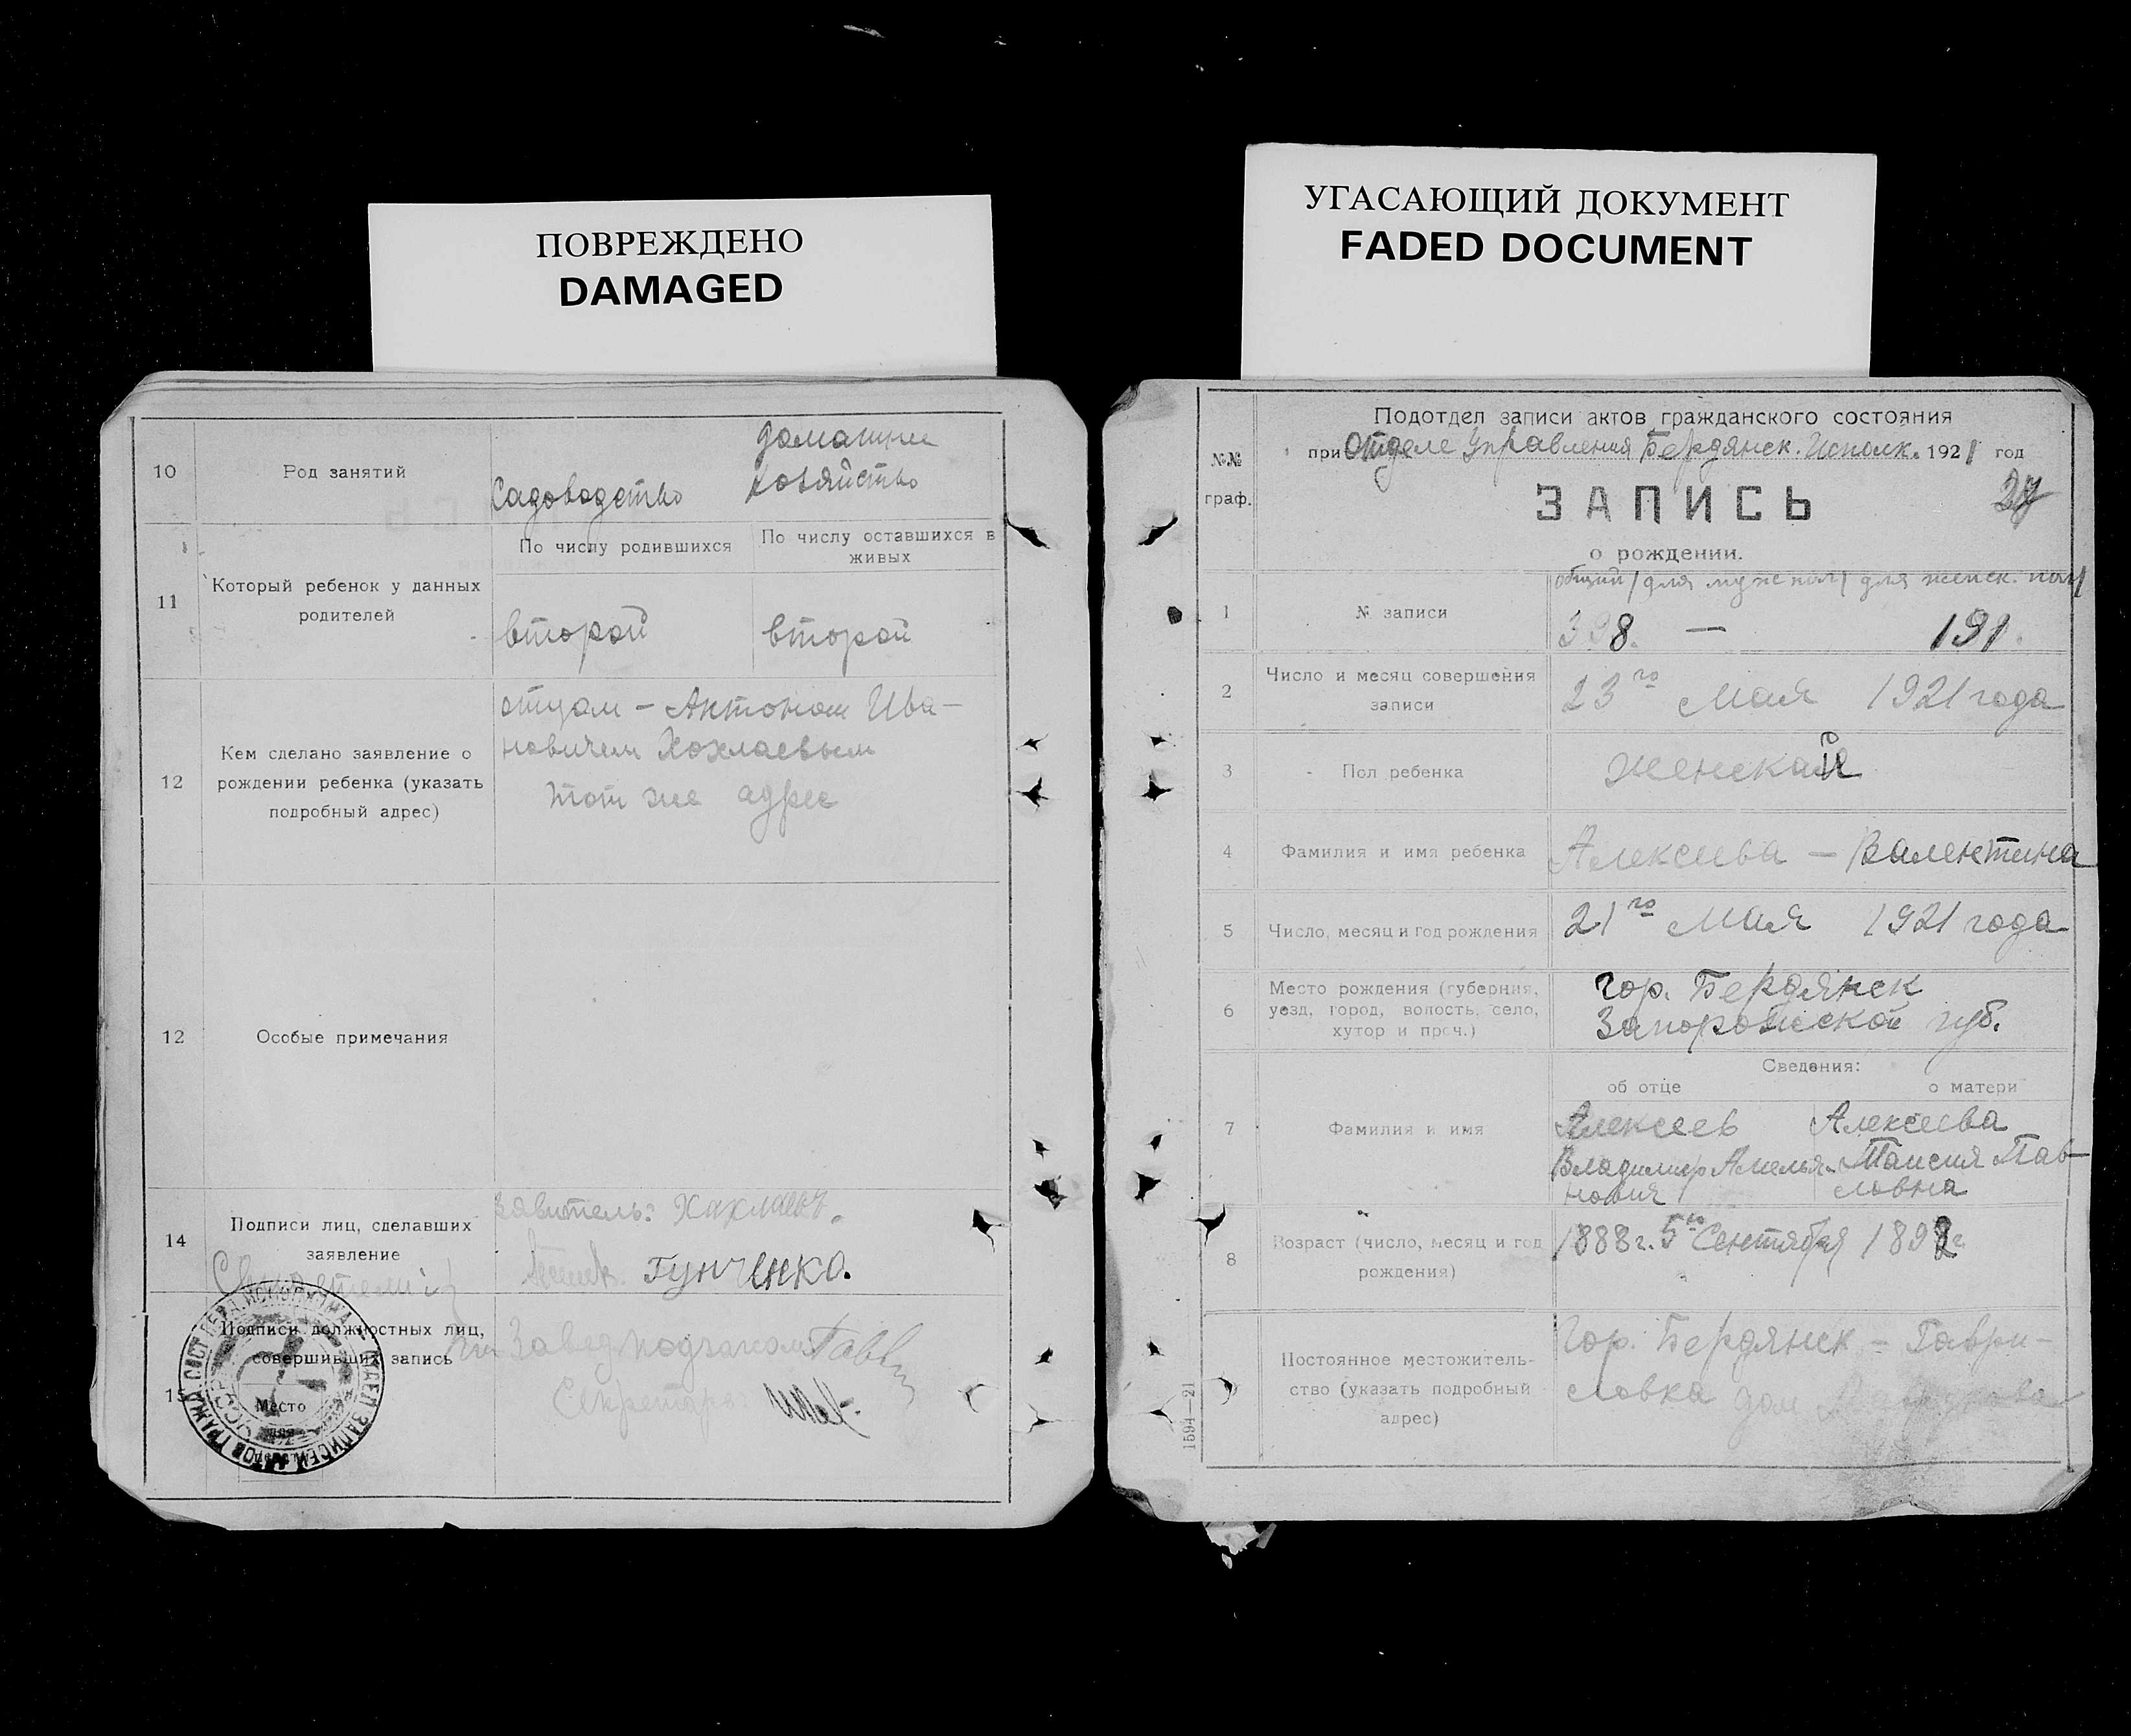 ПОВРЕЖДЕНО
DAMAGED
10
Род занятий
Садоводство
домашнее
хозяйство
11
Который ребенок у данных
родителей
По числу родившихся
По числу оставшихся в
живых
второй
второй
12
Кем сделано заявление о
рождении ребенка (указать
подробный адрес)
отцом – Антоном Ива-
новичем Хохлаевым
тот же адрес
12
Особые примечания
14
Подписи лиц, сделавших
заявление
Свидетели:
Заявитель: Хахлаевъ.
Гунченко.
15
Подписи должностных лиц,
совершивших запись
Место
Завед. подзагсом
Секретарь
УГАСАЮЩИЙ ДОКУМЕНТ
FADED DOCUMENT
№№
граф.
Подотдел записи актов гражданского состояния
при Отделе Управления Бердянск. Исполк. 1921 год
ЗАПИСЬ
о рождении.
1
№ записи
общий / для муж пол / для женск. пол /
398. — 191.
2
Число и месяц совершения
записи
23го Мая 1921 года
3
Пол ребенка
женский
4
Фамилия и имя ребенка
Алексеева – Валентина
5
Число, месяц и год рождения
21го Мая 1921 года
6
Место рождения (губерния,
уезд, город, волость, село,
хутор и проч.)
гор. Бердянск
Запорожской губ.
Сведения:
об отце
о матери
7
Фамилия и имя
Алексеев
Владимир Амелья-
нович
Алексеева
Таисия Пав-
ловна
8
Возраст (число, месяц и год
рождения)
1888 г. 5го Сентября 1892 г
Постоянное местожитель-
ство (указать подробный
адрес)
гор. Бердянск = Гаври-
ловка дом
1594—21